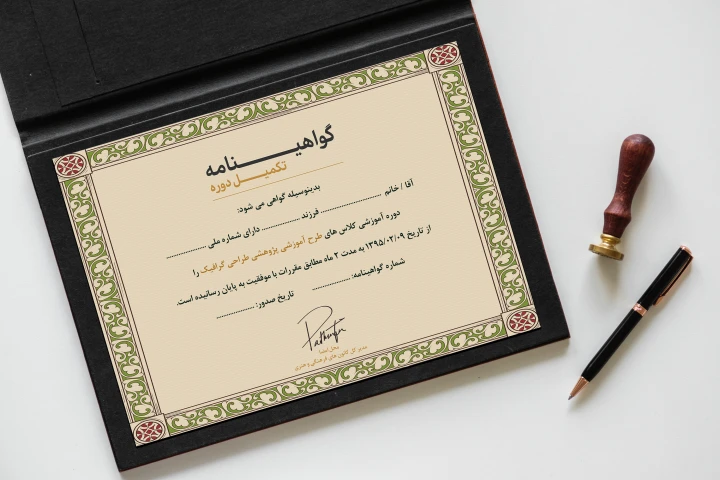 گواهینامه
تکمیل دوره
بدینوسیله گواهی می شود:
آقا / خانم ........................ فرزند ................ دارای شماره ملی ................
دوره آموزشی کلاس های طرح آموزشی پژوهشی طراحی گرافیک را
از تاریخ ۱۳۹۵/۰۲/۰۹ به مدت ۲ ماه مطابق مقررات با موفقیت به پایان رسانیده است.
شماره گواهینامه: ................ تاریخ صدور: ................
محل امضا
مدیر کل کانون های فرهنگی و هنری